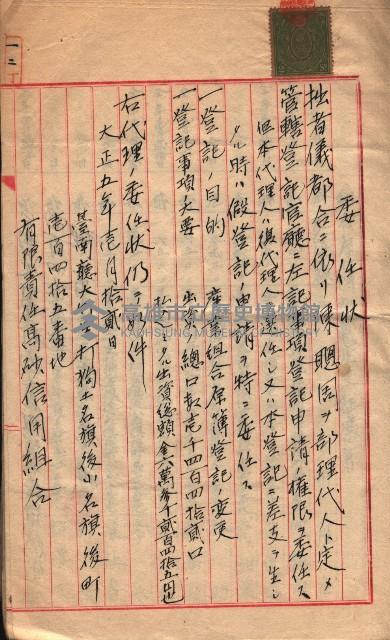 委任状
拙者儀都合ニ依リ陳聰圄ヲ部理代人ト定メ
管轄登記官廳ニ左記事項登記申請ノ權限ヲ委任ス
但本代理人ハ復代理人ヲ選任シ又ハ本登記ニ差支ヲ生シ
タル時ハ假登記ノ申請ヲ特ニ委任ス
一登記ノ目的 産業組合原簿登記ノ変更
一登記事項ノ要 出資總口数壱千四百四拾貳口
払込タル出資總額金一萬參千貳百四拾五円也
右代理ノ委任状仍テ如件
大正五年壱月拾貳日
臺南廳大竹里打狗土名旗後小名旗後町
壱百四拾五番地
有限責任高砂信用組合
高雄市立歷史博物館
KAOHSIUNG MUSEUM OF HISTORY